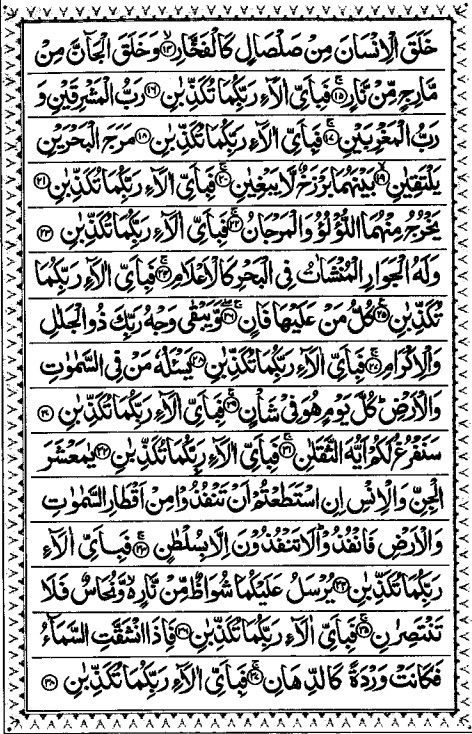 خَلَقَ الْاِنْسَانَ مِنْ صَلْصَالٍ كَالْفَخَّارِ ۙ﴿۱۴﴾ وَخَلَقَ الْجَآنَّ مِنْ
مَّارِجٍ مِّنْ نَّارٍ ۚ﴿۱۵﴾ فَبِاَيِّ اٰلَآءِ رَبِّكُمَا تُكَذِّبٰنِ ﴿۱۶﴾ رَبُّ الْمَشْرِقَيْنِ وَ
رَبُّ الْمَغْرِبَيْنِ ۚ﴿۱۷﴾ فَبِاَيِّ اٰلَآءِ رَبِّكُمَا تُكَذِّبٰنِ ﴿۱۸﴾ مَرَجَ الْبَحْرَيْنِ
يَلْتَقِيٰنِ ۙ﴿۱۹﴾ بَيْنَهُمَا بَرْزَخٌ لَّا يَبْغِيٰنِ ۚ﴿۲۰﴾ فَبِاَيِّ اٰلَآءِ رَبِّكُمَا تُكَذِّبٰنِ ﴿۲۱﴾
يَخْرُجُ مِنْهُمَا اللُّؤْلُؤُ وَالْمَرْجَانُ ۚ﴿۲۲﴾ فَبِاَيِّ اٰلَآءِ رَبِّكُمَا تُكَذِّبٰنِ ﴿۲۳﴾
وَلَهُ الْجَوَارِ الْمُنْشَاٰتُ فِي الْبَحْرِ كَالْاَعْلَامِ ۚ﴿۲۴﴾ فَبِاَيِّ اٰلَآءِ رَبِّكُمَا
تُكَذِّبٰنِ ﴿۲۵﴾ كُلُّ مَنْ عَلَيْهَا فَانٍ ۚۖ﴿۲۶﴾ وَّيَبْقٰى وَجْهُ رَبِّكَ ذُو الْجَلٰلِ
وَالْاِكْرَامِ ۚ﴿۲۷﴾ فَبِاَيِّ اٰلَآءِ رَبِّكُمَا تُكَذِّبٰنِ ﴿۲۸﴾ يَسْـَٔلُهٗ مَنْ فِي السَّمٰوٰتِ
وَالْاَرْضِ ؕ كُلَّ يَوْمٍ هُوَ فِيْ شَاْنٍ ۚ﴿۲۹﴾ فَبِاَيِّ اٰلَآءِ رَبِّكُمَا تُكَذِّبٰنِ ﴿۳۰﴾
سَنَفْرُغُ لَكُمْ اَيُّهَ الثَّقَلٰنِ ۚ﴿۳۱﴾ فَبِاَيِّ اٰلَآءِ رَبِّكُمَا تُكَذِّبٰنِ ﴿۳۲﴾ يٰمَعْشَرَ
الْجِنِّ وَالْاِنْسِ اِنِ اسْتَطَعْتُمْ اَنْ تَنْفُذُوْا مِنْ اَقْطَارِ السَّمٰوٰتِ
وَالْاَرْضِ فَانْفُذُوْا ؕ لَا تَنْفُذُوْنَ اِلَّا بِسُلْطٰنٍ ۚ﴿۳۳﴾ فَبِاَيِّ اٰلَآءِ
رَبِّكُمَا تُكَذِّبٰنِ ﴿۳۴﴾ يُرْسَلُ عَلَيْكُمَا شُوَاظٌ مِّنْ نَّارٍ ۙ۬ وَّنُحَاسٌ فَلَا
تَنْتَصِرٰنِ ۚ﴿۳۵﴾ فَبِاَيِّ اٰلَآءِ رَبِّكُمَا تُكَذِّبٰنِ ﴿۳۶﴾ فَاِذَا انْشَقَّتِ السَّمَآءُ
فَكَانَتْ وَرْدَةً كَالدِّهَانِ ۚ﴿۳۷﴾ فَبِاَيِّ اٰلَآءِ رَبِّكُمَا تُكَذِّبٰنِ ﴿۳۸﴾